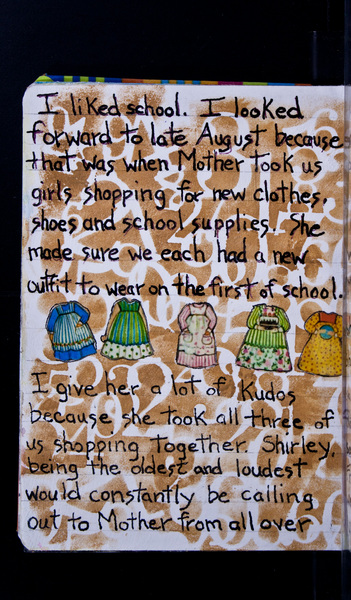 I liked school. I looked
forward to late August because
that was when Mother took us
girls shopping for new clothes,
shoes and school supplies. She
made sure we each had a new
outfit to wear on the first of school.
I give her a lot of Kudos
because she took all three of
us shopping together. Shirley,
being the oldest and loudest
would constantly be calling
out to Mother from all over